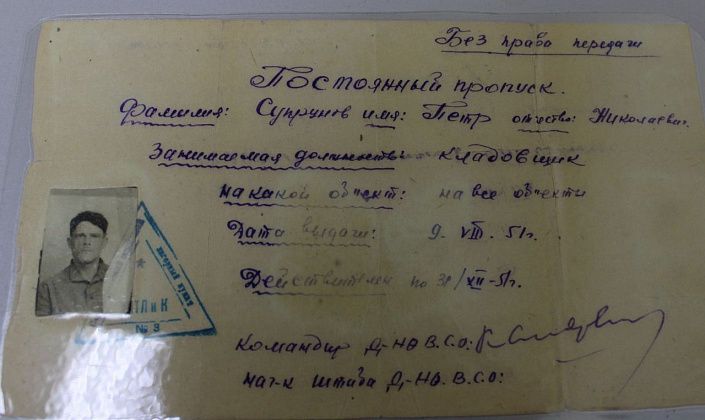 Без права передачи
Постоянный пропуск.
Фамилия: Супрунов имя: Петр отчество: Николаевич.
Занимаемая должность: кладовщик
на какой объект: на все объекти
Дата выдачи: 9. VIII. 51г.
Действителен по 31/XII-51г.
Командир Д-НА В.С.О:
нач-к штаба Д-НА. В.С.О:
ИТЛиК
№ 3